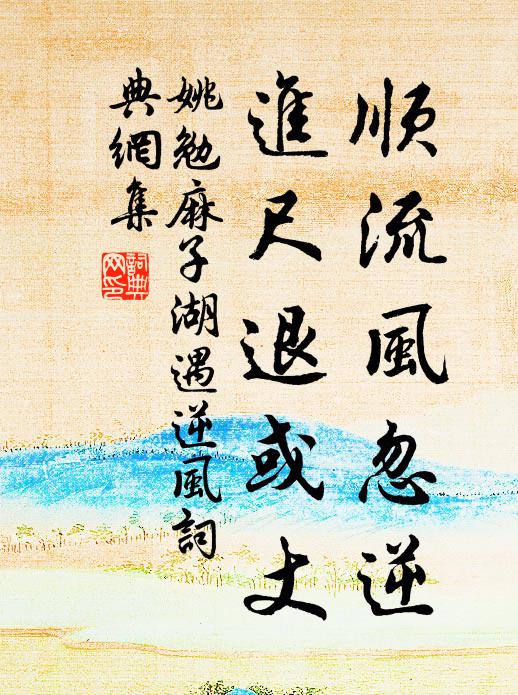 順流風忽逆
進尺退或丈
姚勉麻子湖遇逆風詞
典網集
詞典
网印